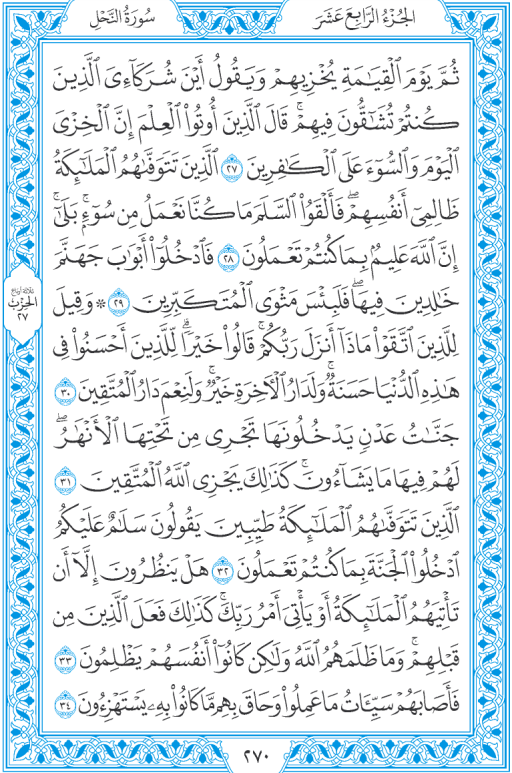 سُورَةُ النَّحْلِ
الجُزْءُ الرَّابِعَ عَشَرَ
ثُمَّ يَوْمَ ٱلْقِيَٰمَةِ يُخْزِيهِمْ وَيَقُولُ أَيْنَ شُرَكَآءِىَ ٱلَّذِينَ
كُنتُمْ تُشَٰٓقُّونَ فِيهِمْ ۚ قَالَ ٱلَّذِينَ أُوتُوا۟ ٱلْعِلْمَ إِنَّ ٱلْخِزْىَ
ٱلْيَوْمَ وَٱلسُّوٓءَ عَلَى ٱلْكَٰفِرِينَ ٢٧ ٱلَّذِينَ تَتَوَفَّىٰهُمُ ٱلْمَلَٰٓئِكَةُ
ظَالِمِىٓ أَنفُسِهِمْ ۖ فَأَلْقَوُا۟ ٱلسَّلَمَ مَا كُنَّا نَعْمَلُ مِن سُوٓءٍۭ ۚ بَلَىٰٓ ۚ
إِنَّ ٱللَّهَ عَلِيمٌۢ بِمَا كُنتُمْ تَعْمَلُونَ ٢٨ فَٱدْخُلُوٓا۟ أَبْوَٰبَ جَهَنَّمَ
خَٰلِدِينَ فِيهَا ۖ فَلَبِئْسَ مَثْوَى ٱلْمُتَكَبِّرِينَ ٢٩ ۞ وَقِيلَ
لِلَّذِينَ ٱتَّقَوْا۟ مَاذَآ أَنزَلَ رَبُّكُمْ ۚ قَالُوا۟ خَيْرًا ۗ لِّلَّذِينَ أَحْسَنُوا۟ فِى
هَٰذِهِ ٱلدُّنْيَا حَسَنَةٌ ۚ وَلَدَارُ ٱلْءَاخِرَةِ خَيْرٌ ۚ وَلَنِعْمَ دَارُ ٱلْمُتَّقِينَ ٣٠
جَنَّٰتُ عَدْنٍ يَدْخُلُونَهَا تَجْرِى مِن تَحْتِهَا ٱلْأَنْهَٰرُ ۖ
لَهُمْ فِيهَا مَا يَشَآءُونَ ۚ كَذَٰلِكَ يَجْزِى ٱللَّهُ ٱلْمُتَّقِينَ ٣١
ٱلَّذِينَ تَتَوَفَّىٰهُمُ ٱلْمَلَٰٓئِكَةُ طَيِّبِينَ ۙ يَقُولُونَ سَلَٰمٌ عَلَيْكُمُ
ٱدْخُلُوا۟ ٱلْجَنَّةَ بِمَا كُنتُمْ تَعْمَلُونَ ٣٢ هَلْ يَنظُرُونَ إِلَّآ أَن
تَأْتِيَهُمُ ٱلْمَلَٰٓئِكَةُ أَوْ يَأْتِىَ أَمْرُ رَبِّكَ ۚ كَذَٰلِكَ فَعَلَ ٱلَّذِينَ مِن
قَبْلِهِمْ ۚ وَمَا ظَلَمَهُمُ ٱللَّهُ وَلَٰكِن كَانُوٓا۟ أَنفُسَهُمْ يَظْلِمُونَ ٣٣
فَأَصَابَهُمْ سَيِّـَٔاتُ مَا عَمِلُوا۟ وَحَاقَ بِهِم مَّا كَانُوا۟ بِهِۦ يَسْتَهْزِءُونَ ٣٤
ثلاثة أرباع
الحِزْب
٢٧
٢٧٠